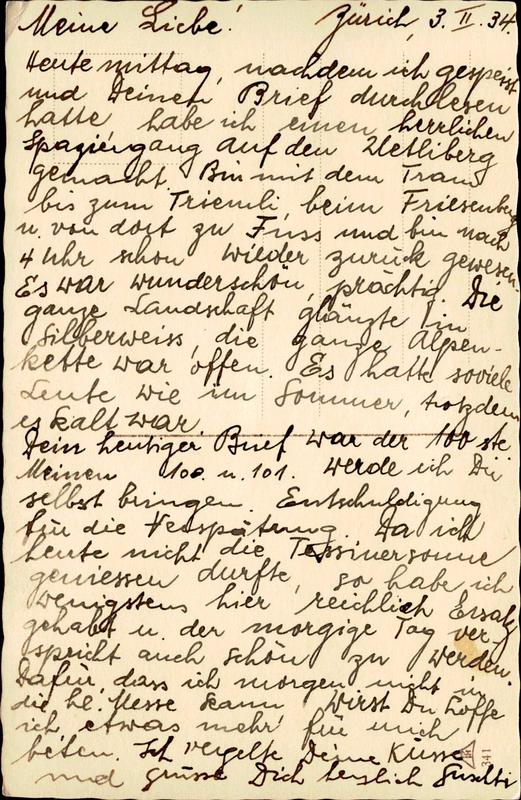 Meine Liebe! Zürich, 3. II. 34.
Heute mittag, nachdem ich gespeist
und Deinen Brief durchlesen
hatte habe ich einen herrlichen
Spaziergang auf den Uetliberg
gemacht. Bin mit dem Tram
bis zum Triemli, beim Friesenberg
u. von dort zu Fuss und bin nach
4 Uhr schon wieder zurück gewesen.
Es war wunderschön, prächtig. Die
ganze Landschaft glänzte in
Silberweiss, die ganze Alpen-
kette war offen. Es hatte soviele
Leute wie im Sommer, trotzdem
es kalt war.
Dein heutiger Brief war der 100 ste
Meinen 100. u. 101. werde ich Dir
selbst bringen. Entschuldigung
für die Verspätung. Da ich
heute nicht die Tessinersonne
geniessen durfte, so habe ich
wenigstens hier reichlich Ersatz
gehabt u. der morgige Tag ver-
spricht auch schön zu werden.
Dafür, dass ich morgen nicht in
die hl. Messe kann wirst Du hoffe
ich etwas mehr für mich
beten. Ich vergelte Deine Küsse
und grüsse Dich herzlich Guschti
341